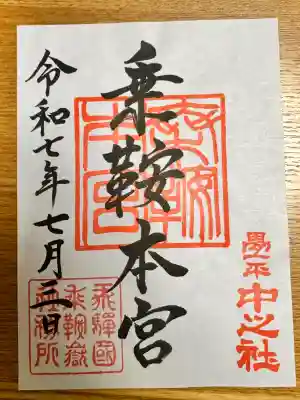 畳平中之社
乗鞍本宮
令和七年七月三日
乘鞍
本宮
飛驒國
乘鞍嶽
社務所